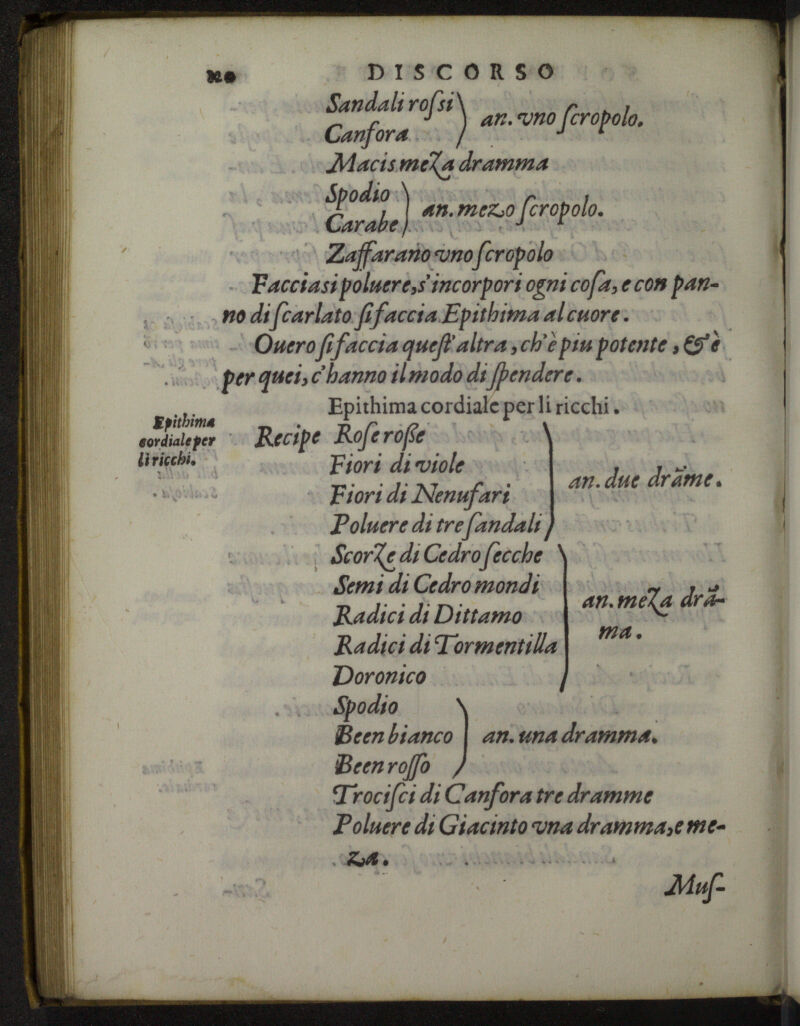 DISCORSO
Sandali rosſi
Canfora
an. vno ſcropolo.
Macis meza dramma
Spodio
Carabe
an. mezo ſcropolo.
Zaffarano vno ſcropolo
Facciasi poluere, s'incorpori ogni coſa, e con pan-
no di ſcarlato ſi faccia Epithima al cuore.
Ouero ſi faccia queſt'altra, ch'è piu potente, & è
per quei, c'hanno il modo di ſpendere.
Epithima cordiale per li ricchi.
Epithima
cordiale per
li ricchi.
Recipe Roſe roße
Fiori di viole
Fiori di Nenufari
Poluere di tre ſandali
an. due drāme.
Scorze di Cedro ſecche
Semi di Cedro mondi
Radici di Dittamo
Radici di Tormentilla
Doronico
an. meza drā-
ma.
Spodio
Been bianco
Been roſſo
an. una dramma.
Trociſci di Canfora tre dramme
Poluere di Giacinto vna dramma, e me-
za.
Muſ-